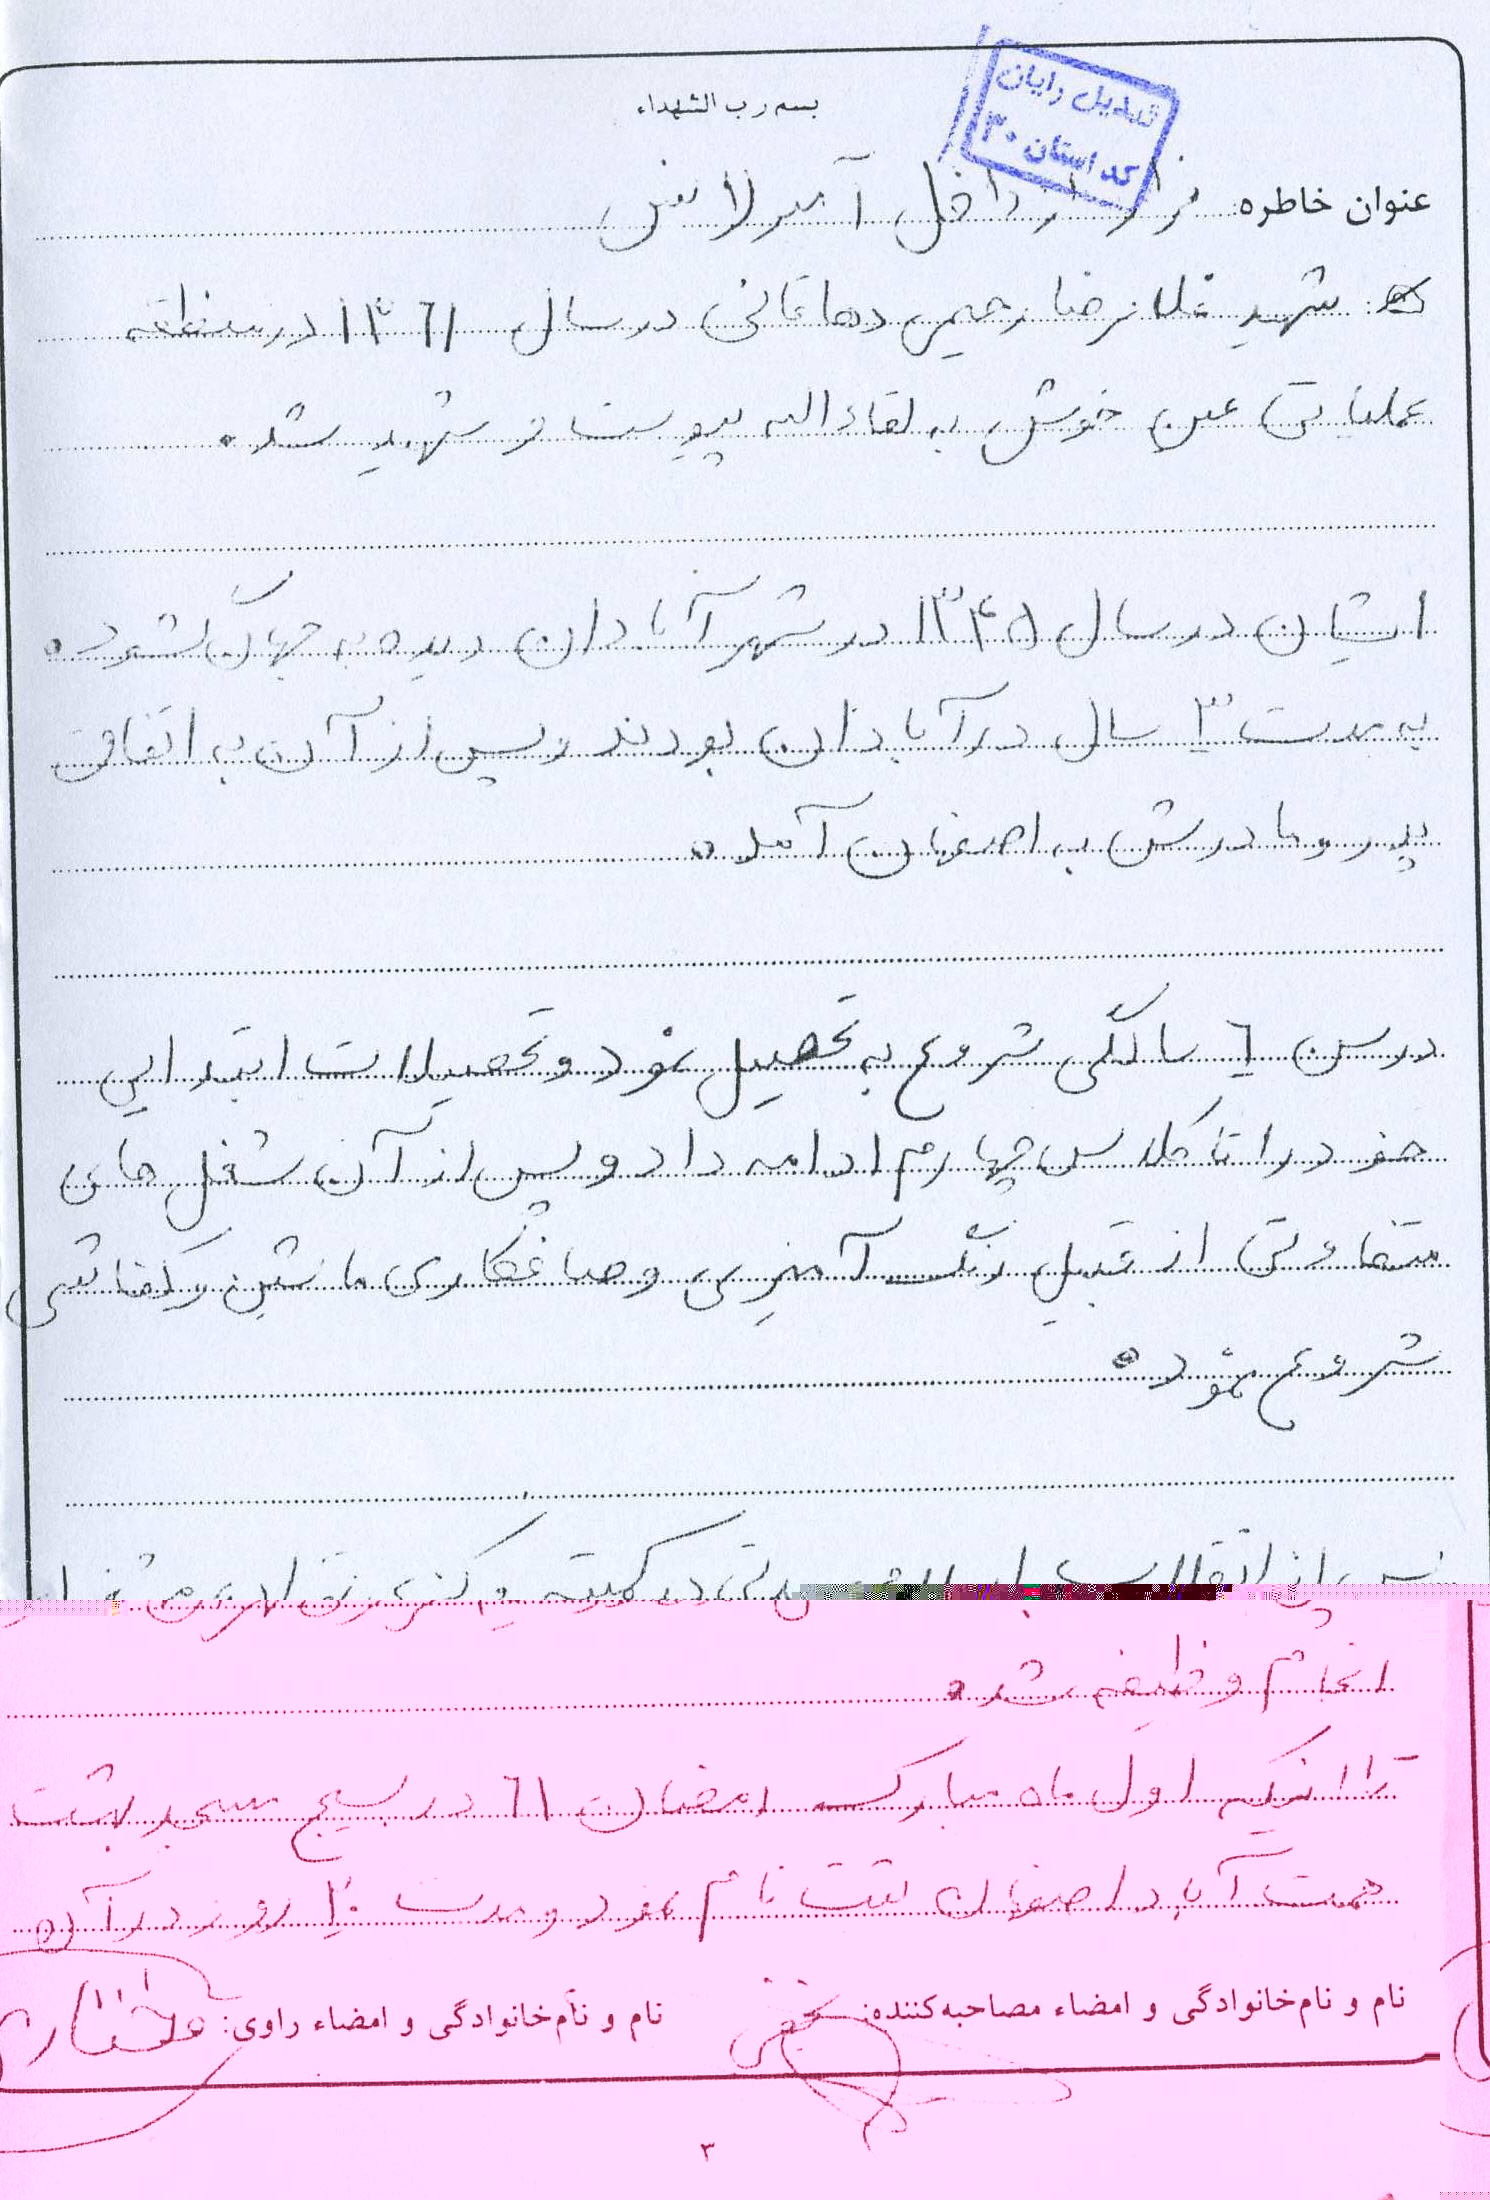 بسم رب الشهداء
تبدیل رایان
کد استان ۳۰
عنوان خاطره: فرار از داخل آمبولانس
شهید غلامرضا رحیمی دهاقانی در سال ۱۳۶۱ در منطقه
عملیاتی عین خوش به لقاء الله پیوست و شهید شد.
ایشان در سال ۱۳۴۵ در شهر آبادان دیده به جهان گشود.
به مدت ۳ سال در آبادان بودند و پس از آن به اتفاق
پدر و مادرش به اصفهان آمد.
در سن ۶ سالگی شروع به تحصیل نمود و تحصیلات ابتدایی
خود را تا کلاس چهارم ادامه داد و پس از آن شغل های
متفاوتی از قبیل رنگ آمیزی و صافکاری ماشین و کفاشی
شروع نمود.
پس از انقلاب اسلامی مدتی در کمیته
انجام وظیفه شد.
تا اینکه اول ماه مبارک رمضان ۶۱ در بسیج مسجد بهشت
همت آباد اصفهان ثبت نام نمود و مدت ۲۰ روز در آن
نام و نام خانوادگی و امضاء مصاحبه کننده: نام و نام خانوادگی و امضاء راوی:
۳